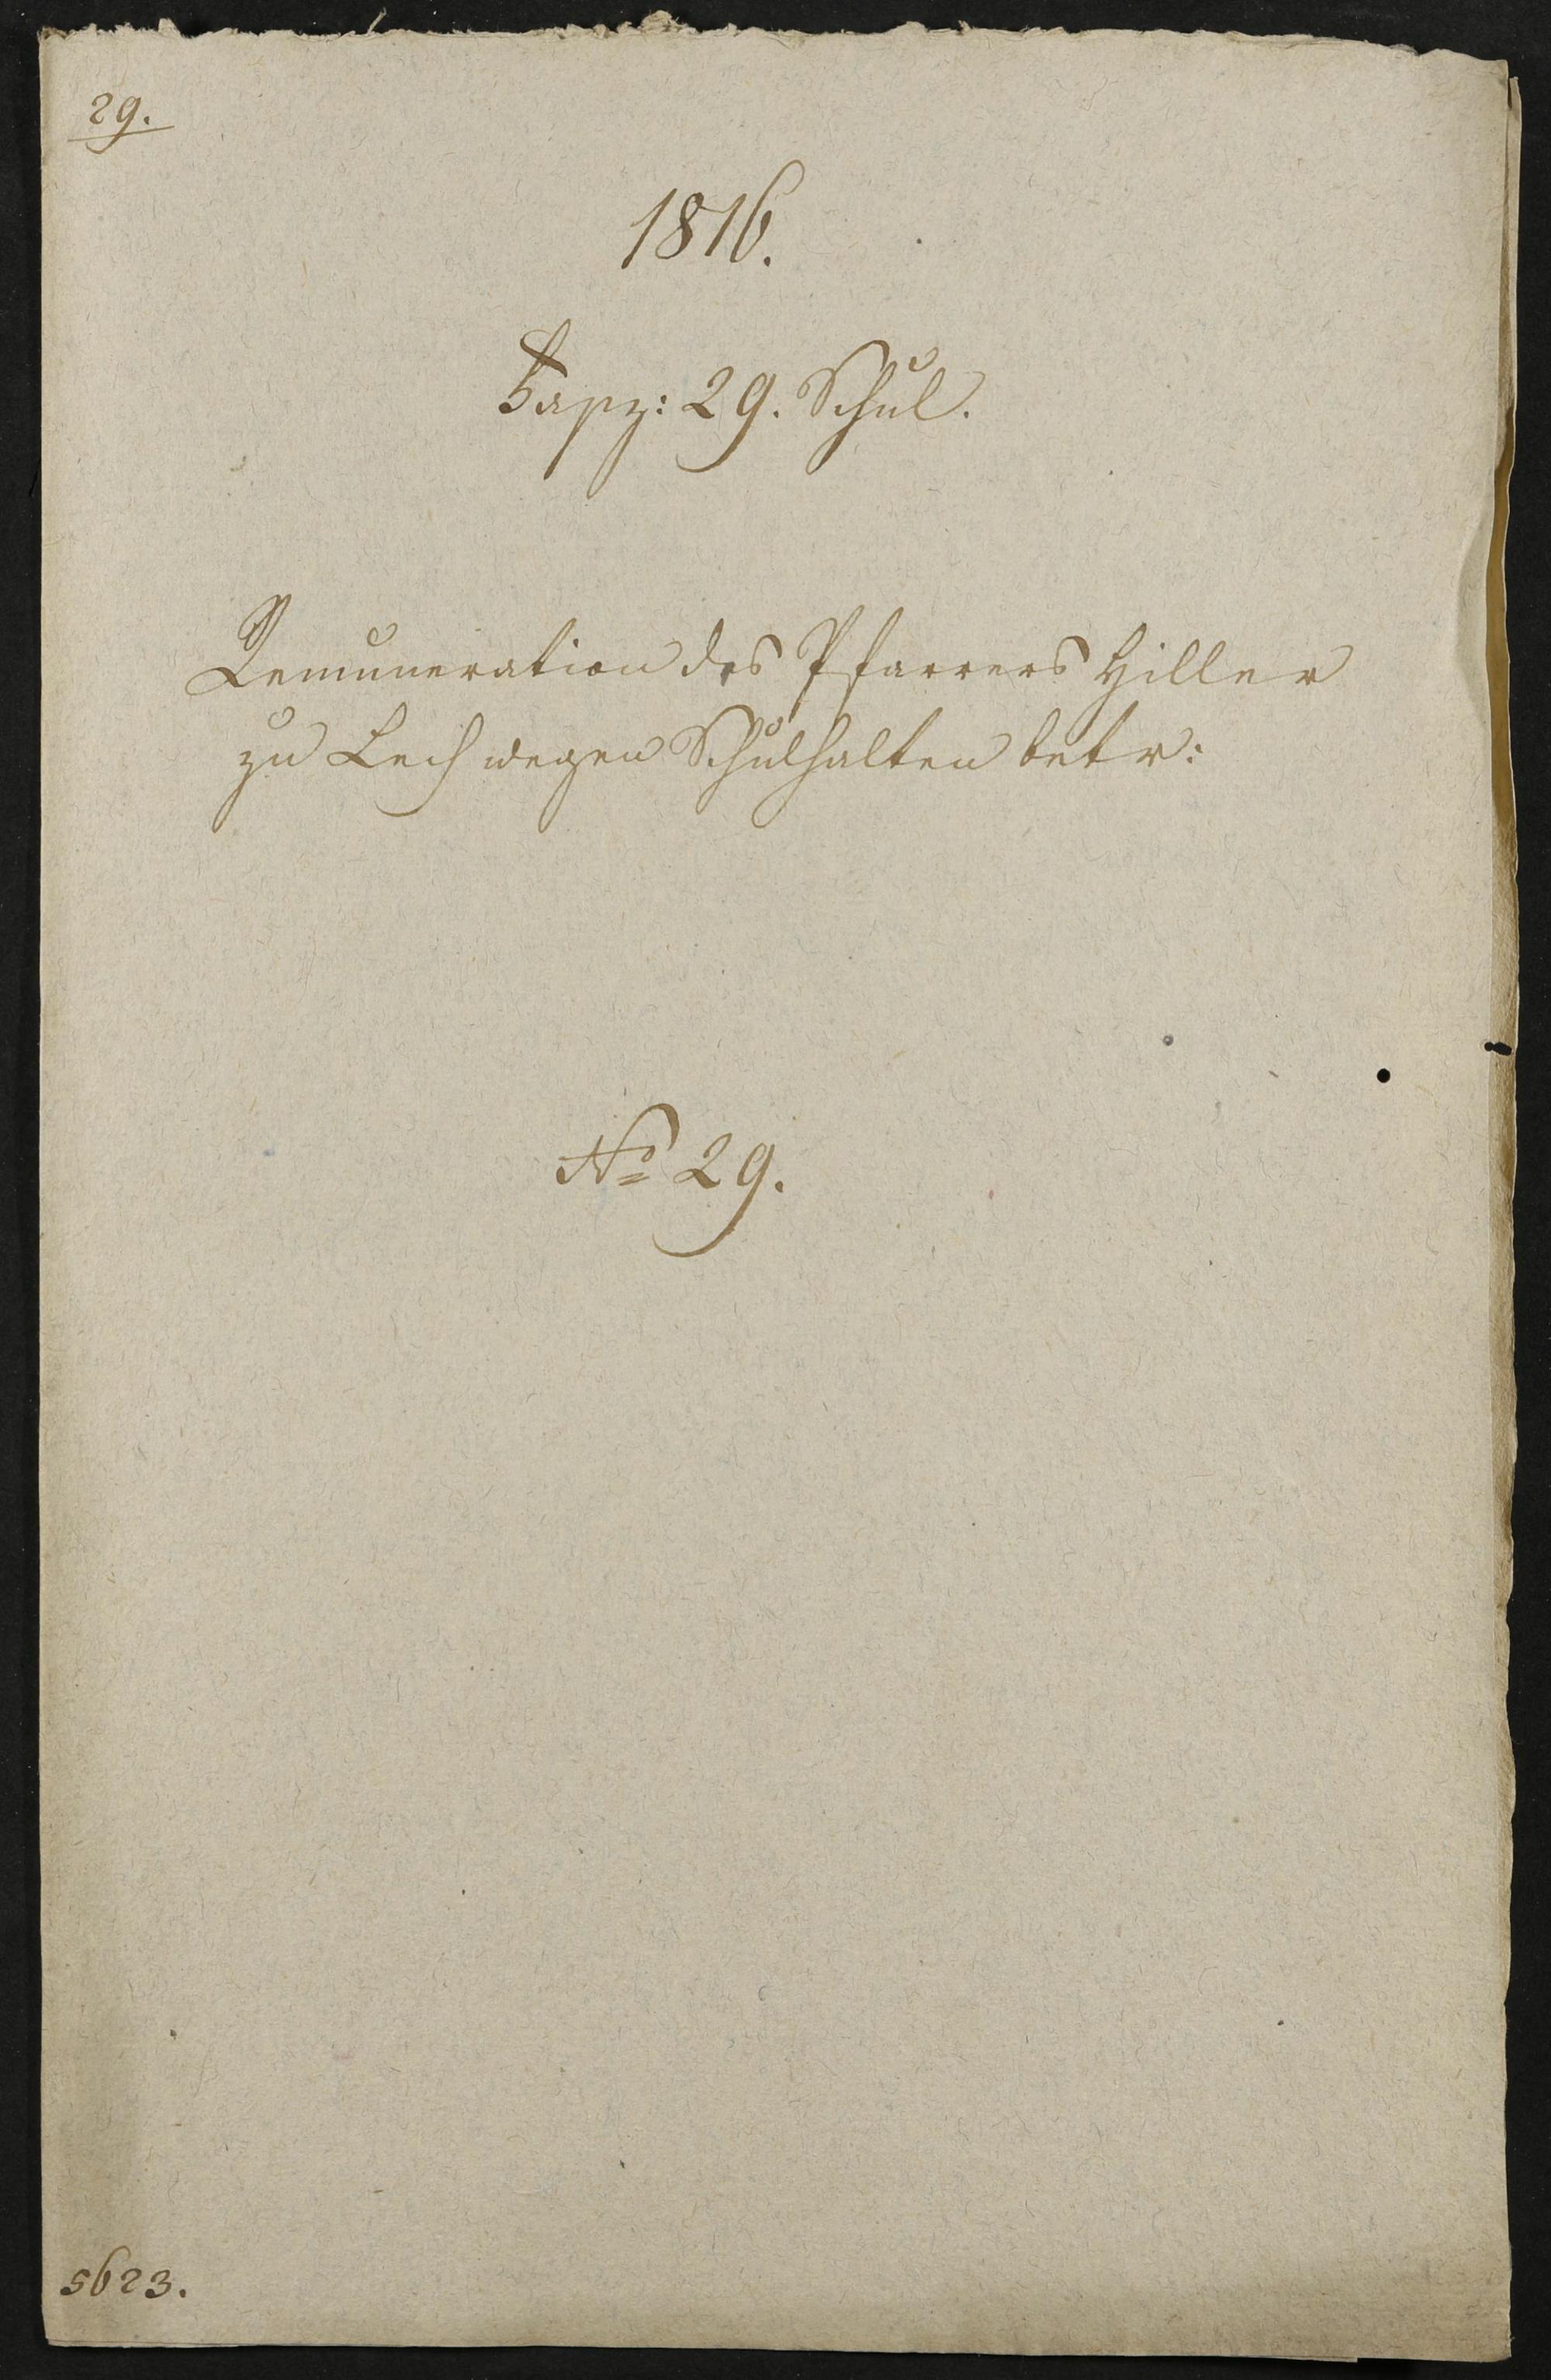 29.
1816.
Fasz: 29. Schul.
Remuneration des Pfarrers Hiller
zu Lech wegen Schulhalten betr:
No 29.
5623.